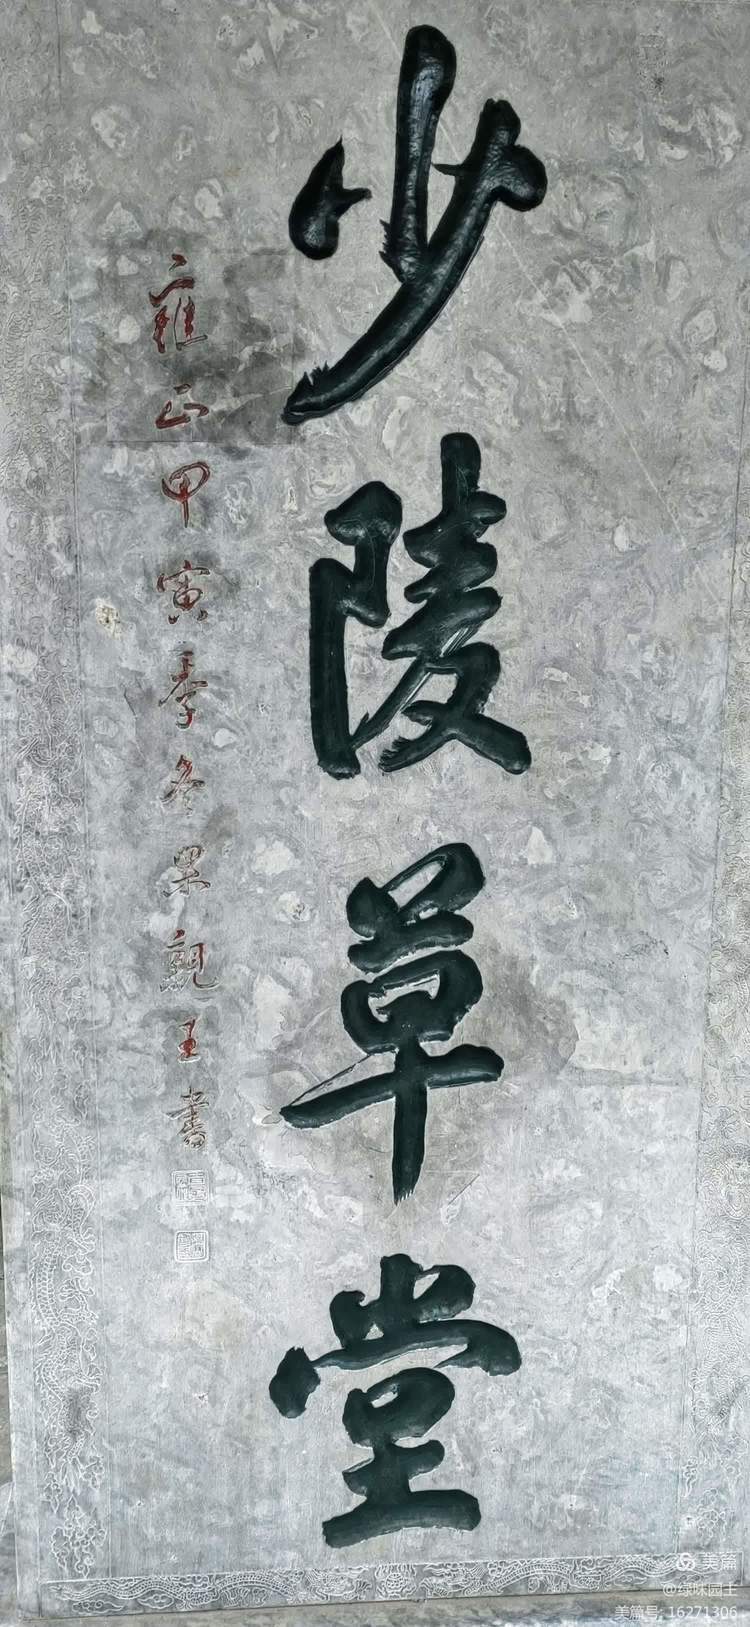 少陵草堂
雍正甲寅季冬果親王書
美篇
美篇号: 16271306